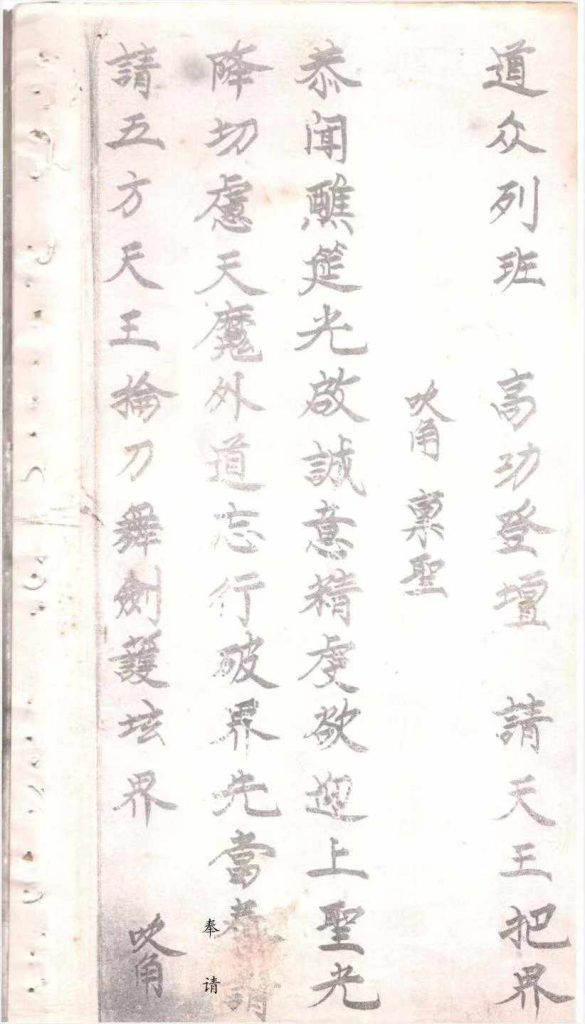 道众列班 高功登壇 請天王把界
吹角 禀聖
恭闻醮筵光啟誠意精虔欲迎上聖光
降切慮天魔外道忘行破界先當奉請
奉请
請五方天王掄刀舞劍護坛界 吹角